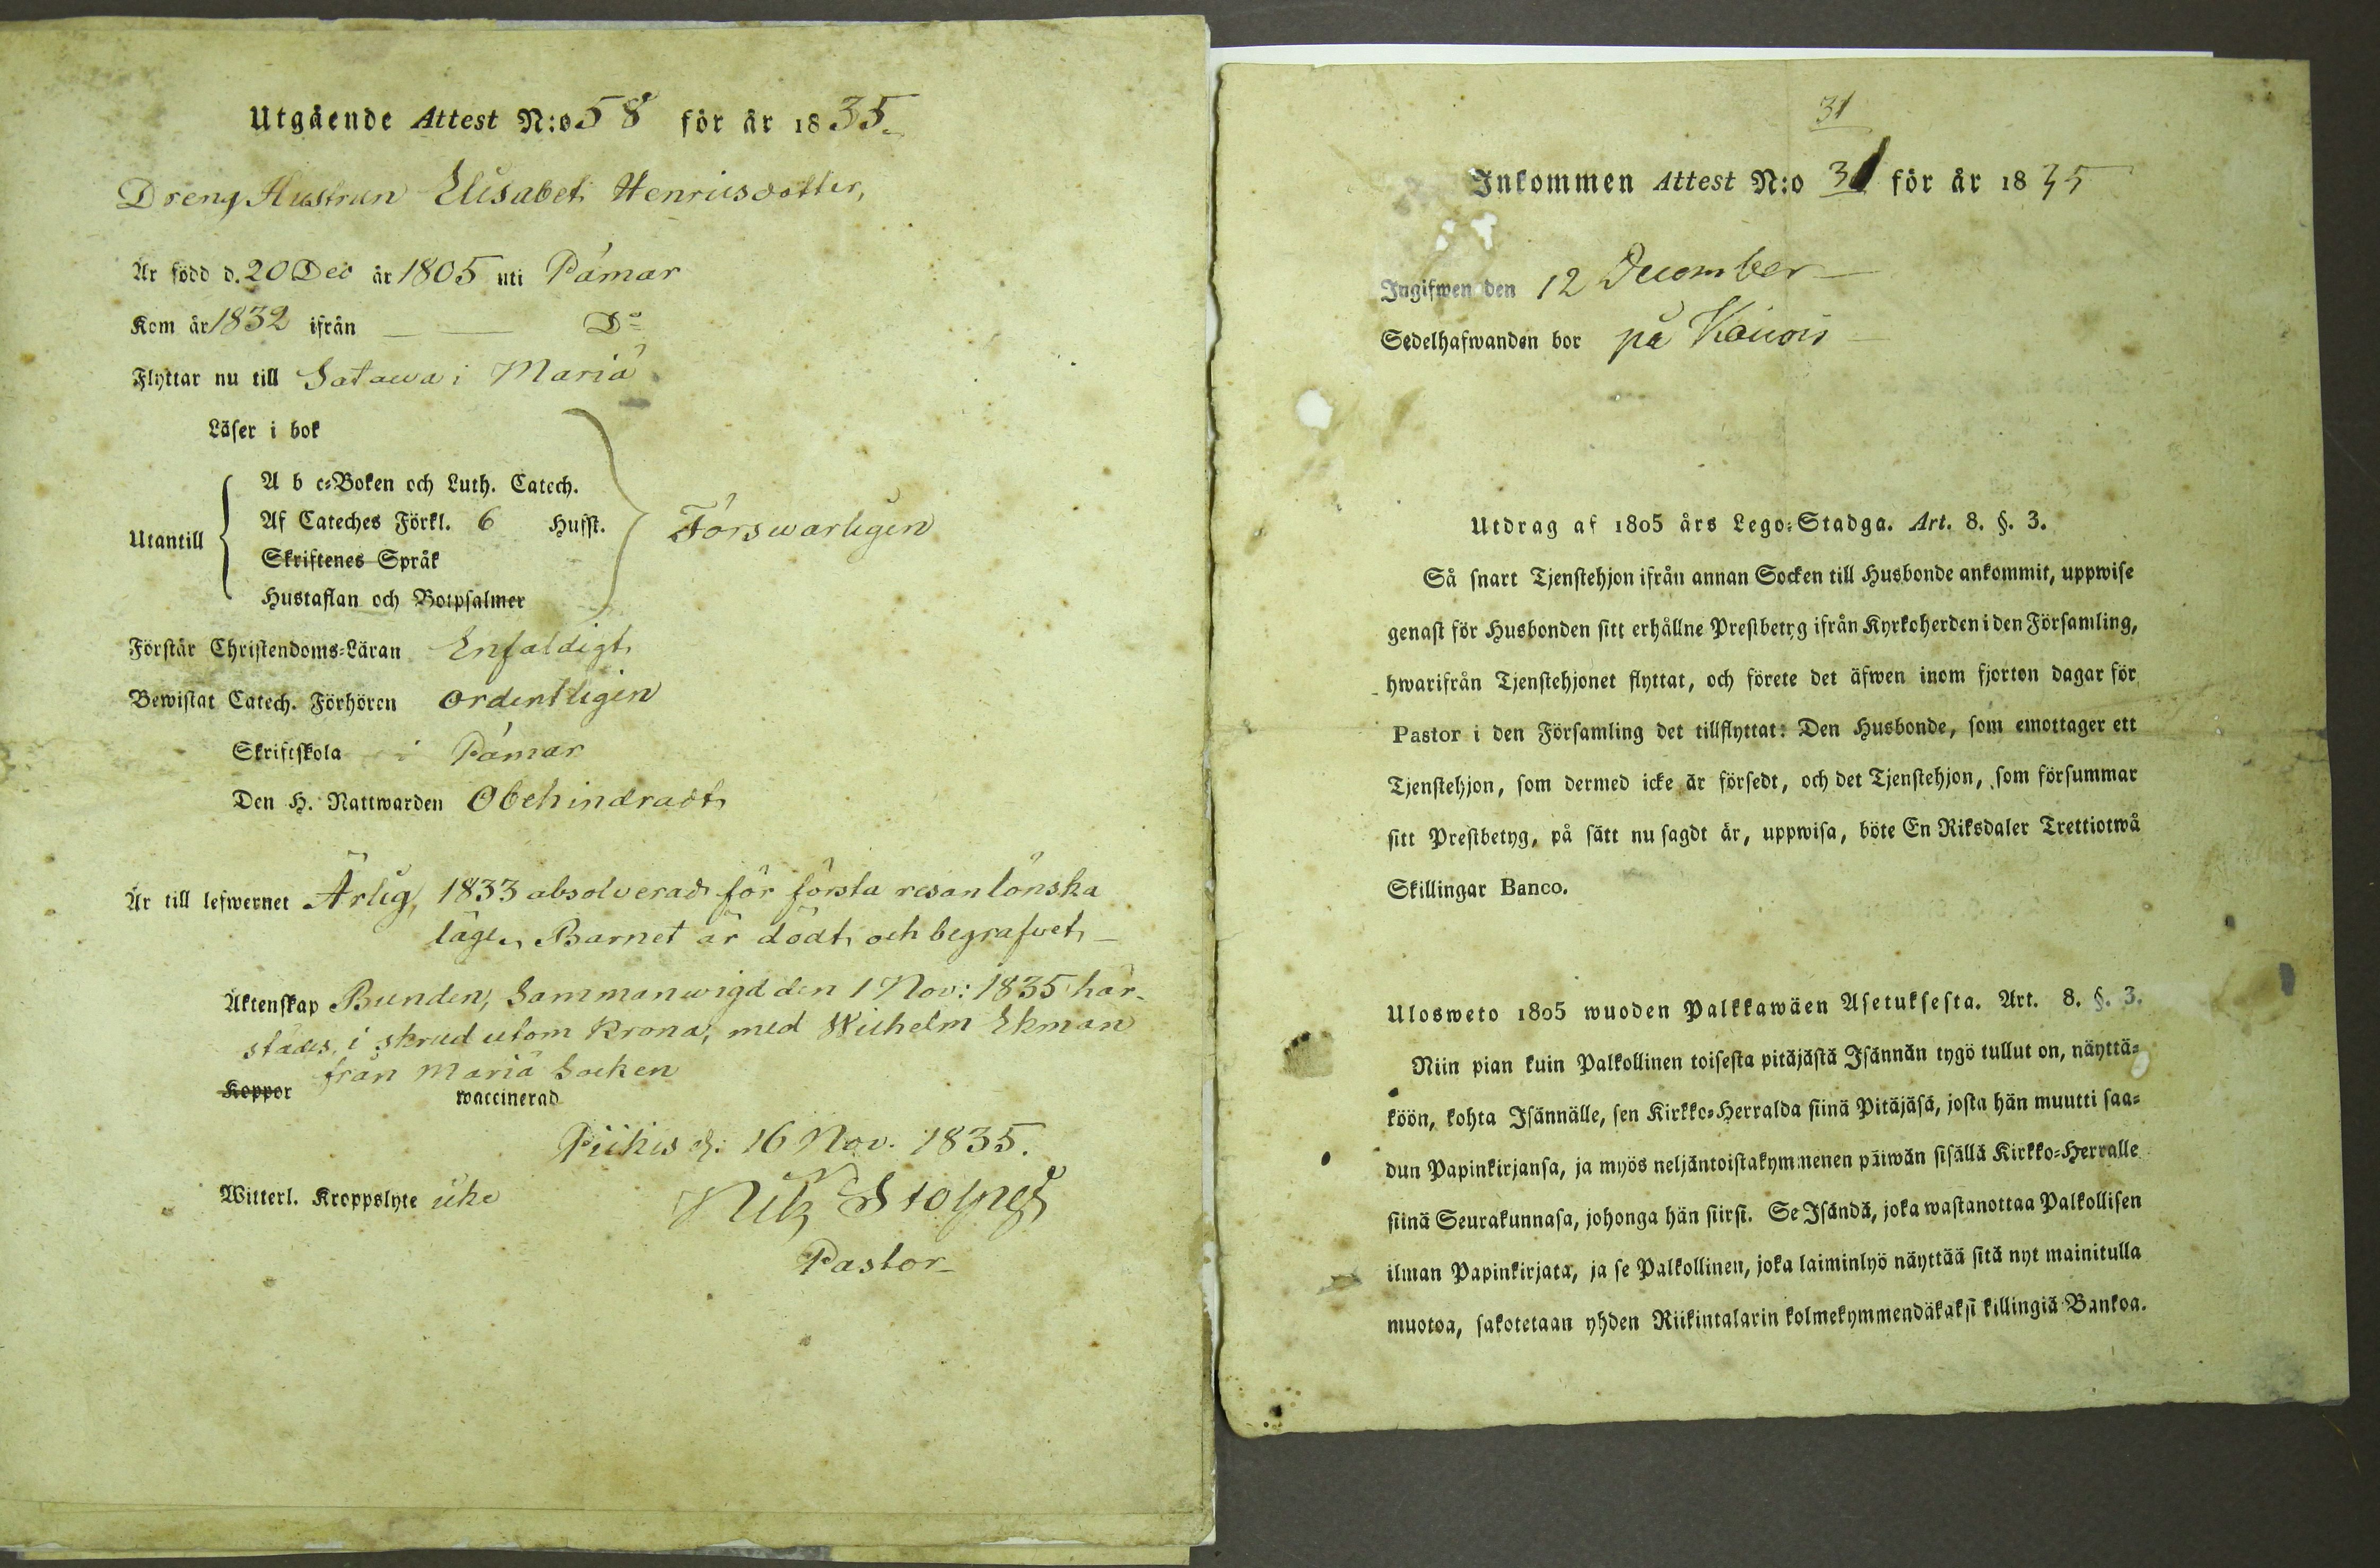 Utgående Attest N:o 58 för år 1835.
Dreng Hustrun Elisabet Henricsdotter,
Är född d. 20 Dec år 1805 uti Pámar
Kom år 1832 ifrån — — Do
Flyttar nu till Satawa i Mariæ
Läser i bok
Utantill
A b c-Boken och Luth. Catech.
Af Cateches Förkl. 6 Husst.
Skriftenes Språk
Hustaflan och Botpsalmer
Förswarligen
Förstår Christendoms-Läran Enfaldigt
Bewistat Catech. Förhören ordentligen
Skriftskola i Pámar
Den H. Nattwarden Obehindradt
Är till lefwernet Ärlig, 1833 absolverad för första resan lönska
läge, Barnet är dödt och begrafvet —
Äktenskap Bunden, Sammanwigd den 1 Nov: 1835 här-
städes, i skrud utom Krona, med Wilhelm Ekman
från Mariæ Socken
Koppor waccinerad
Piikis d. 16 Nov. 1835.
Witterl. Kroppslyte icke
Pastor
31
Inkommen Attest N:o 31 för år 1835
Ingifwen den 12 December
Sedelhafwanden bor på
Utdrag af 1805 års Lego-Stadga. Art. 8. §. 3.
Så snart Tjenstehjon ifrån annan Socken till Husbonde ankommit, uppwise
genast för Husbonden sitt erhållne Prestbetyg ifrån Kyrkoherden i den Församling,
hwarifrån Tjenstehjonet flyttat, och förete det äfwen inom fjorton dagar för
Pastor i den Församling det tillflyttat: Den Husbonde, som emottager ett
Tjenstehjon, som dermed icke är försedt, och det Tjenstehjon, som försummar
sitt Prestbetyg, på sätt nu sagdt är, uppwisa, böte En Riksdaler Trettiotwå
Skillingar Banco.
Ulosweto 1805 wuoden Palkkawäen Asetuksesta. Art. 8. §. 3.
Niin pian kuin Palkollinen toisesta pitäjästä Isännän tygö tullut on, näyttä-
köön, kohta Isännälle, sen Kirkko-Herralda siinä Pitäjäsä, josta hän muutti saa-
dun Papinkirjansa, ja myös neljäntoistakymmenen päiwän sisällä Kirkko-Herralle
siinä Seurakunnasa, johonga hän siirsi. Se Isändä, joka wastanottaa Palkollisen
ilman Papinkirjata, ja se Palkollinen, joka laiminlyö näyttää sitä nyt mainitulla
muotoa, sakotetaan yhden Riikintalarin kolmekymmendäkaksi killingiä Bankoa.